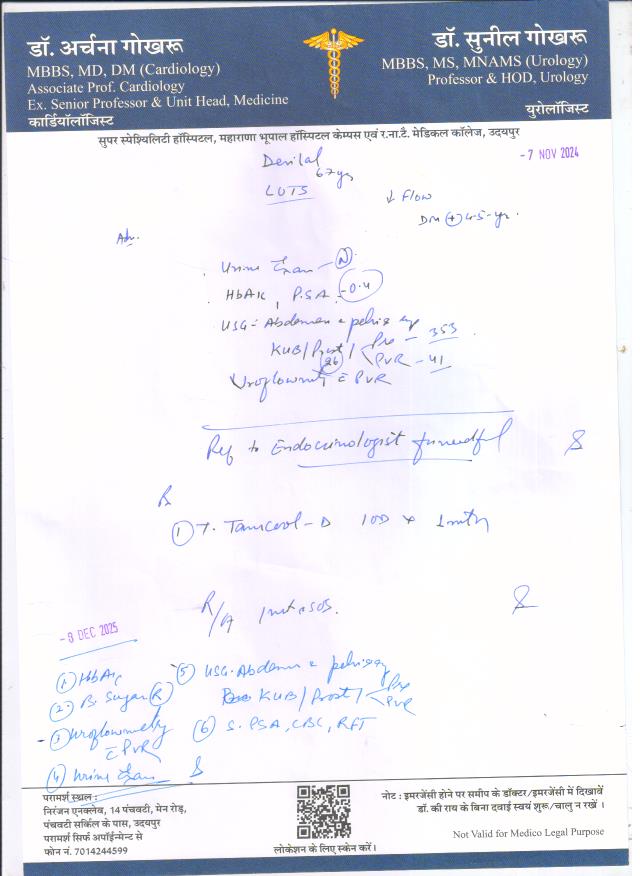 डॉ. अर्चना गोखरू
MBBS, MD, DM (Cardiology)
Associate Prof. Cardiology
Ex. Senior Professor & Unit Head, Medicine
कार्डियॉलॉजिस्ट
डॉ. सुनील गोखरू
MBBS, MS, MNAMS (Urology)
Professor & HOD, Urology
यूरोलॉजिस्ट
सुपर स्पेश्यिलिटी हॉस्पिटल, महाराणा भूपाल हॉस्पिटल केम्पस एवं र.ना.टै. मेडिकल कॉलेज, उदयपुर
- 7 NOV 2024
67 yrs
LUTS
↓ Flow
DM (+) 4-5-yr.
Adv.
Urine Exam - N
HbA1c, P.SA - 0.4
USG - Abdomen & pelvis
KUB/Prost/ Pre - 353
26 PVR - 41
Uroflowmetry c̄ PVR
Ref to Endocrinologist
R
① T. - D 1OD x 1mth
R/A 1mth SOS.
- 8 DEC 2025
① HbA1c
② B. Sugar (R)
③ Uroflowmetry
c̄ PVR
④ Urine Exam
⑤ USG. Abdomen & pelvis
KUB/Prost/ Pre
PVR
⑥ S. PSA, CBC, RFT
परामर्श स्थल :
निरंजन एनक्लेव, 14 पंचवटी, मेन रोड़,
पंचवटी सर्किल के पास, उदयपुर
परामर्श सिर्फ अपॉईन्मेन्ट से
फोन नं. 7014244599
लोकेशन के लिए स्केन करें।
नोट : इमरजेंसी होने पर समीप के डॉक्टर/इमरजेंसी में दिखावें
डॉ. की राय के बिना दवाई स्वयं शुरू/चालु न रखें ।
Not Valid for Medico Legal Purpose